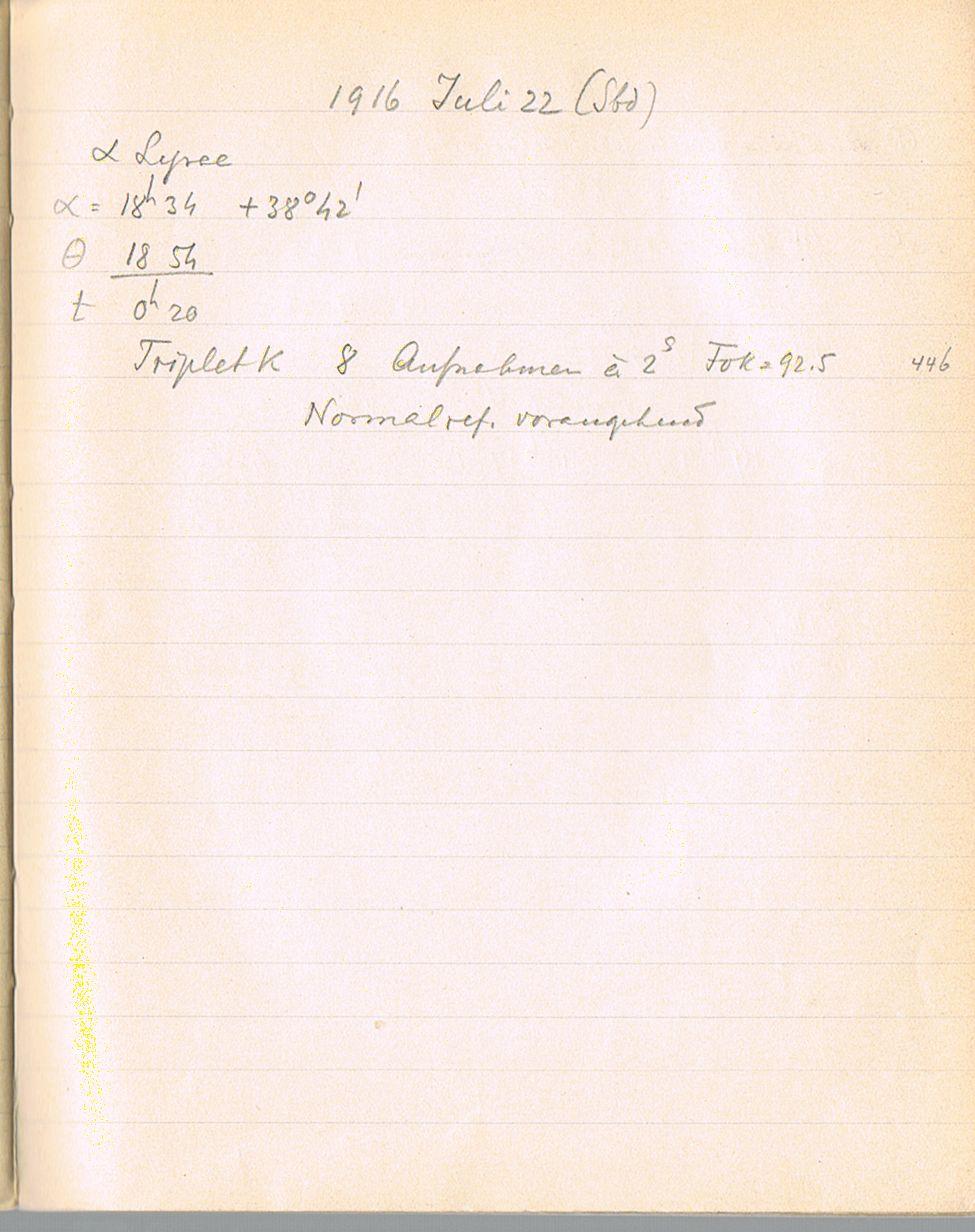 1916 Juli 22 (Sbd)
α Lyrae
α = 18ʰ 34 +38° 42'
θ 18 54
t 0ʰ 20
Triplet K 8 Aufnahmen à 2ˢ Fok = 92.5 446
Normalref. vorangehend